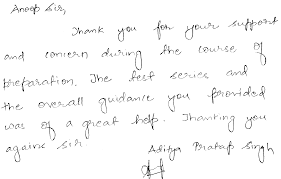 Anoop Sir,
Thank you for your support
and concern during the course of
preparation. The test series and
the overall guidance you provided
was of a great help. Thanking you
againe sir
Aditya Pratap Singh